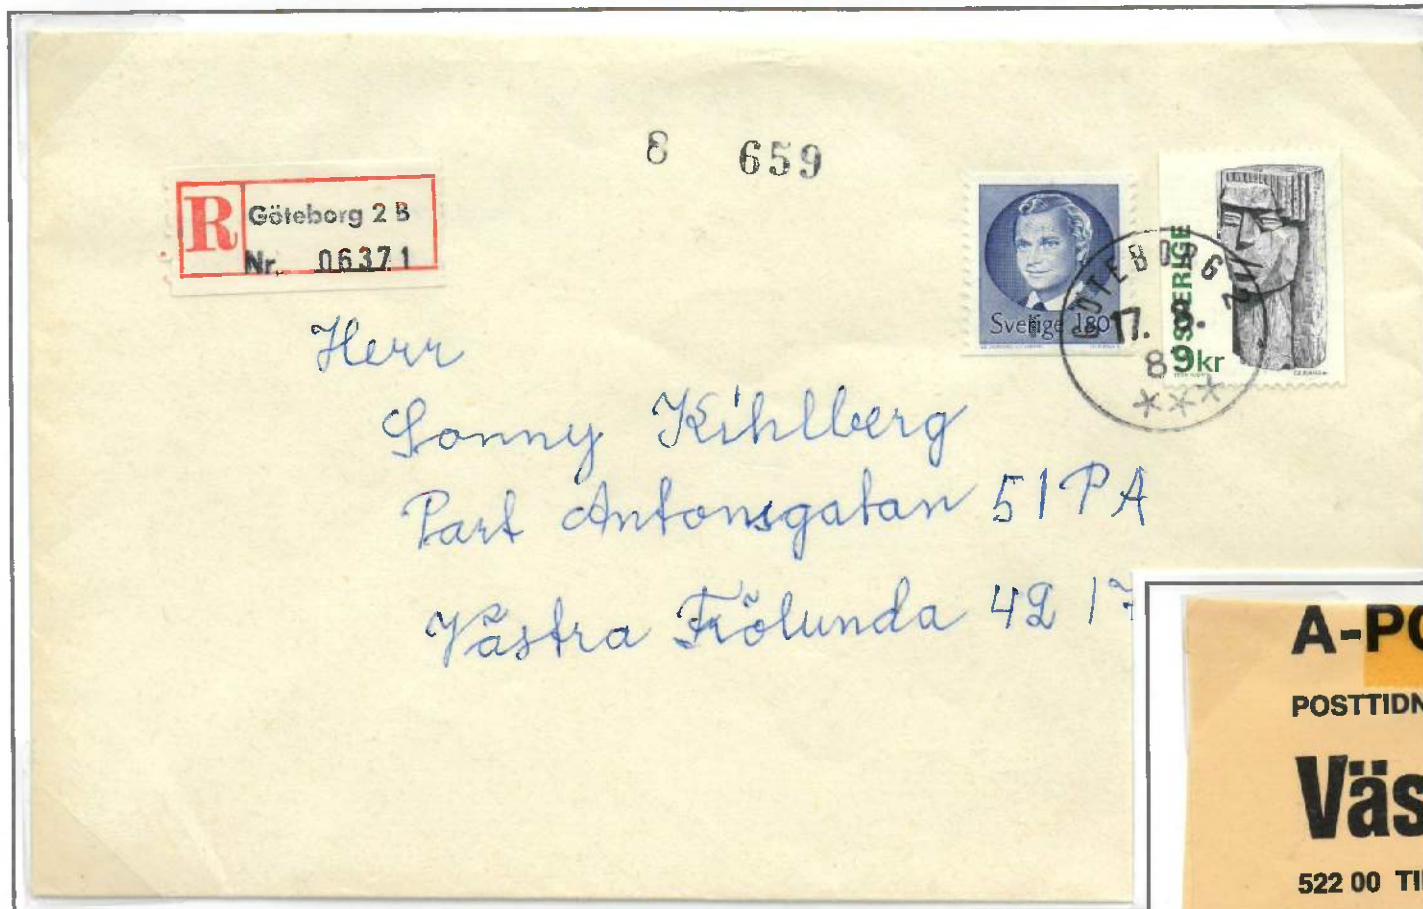 8 659
R
Göteborg 2 B
Nr. 06371
Sverige 180
SVERIGE
9kr
GÖTEBORG 2
17.
Herr
Sonny Kihlberg
Part Antonsgatan 51 PA
Västra Frölunda 42 17
A-PO
POSTTIDN
Väs
522 00 TI